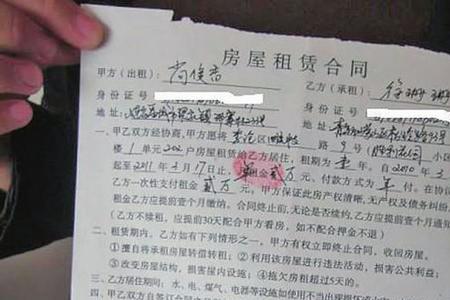 房屋租赁合同
甲方（出租）：尚俊吉 乙方（承租）：徐珊珊
身份证号 身份证号
地址： 地址：
一、甲乙双方经协商，甲方愿将李沧区 路9号 小区
楼1单元202户房屋租赁给乙方居住，租期为壹年。自2010年3
起至2011年3月17日止。年租金贰万元，付款方式为年付。在协
乙方一次性支付租金贰万元，甲方保证此房产权清晰，无产权及债务纠纷
乙方应提前壹个月缴纳。合同终止前，无论是否续约，乙方应提前壹个月通知
（乙方不续租，应提前30天配合甲方看房，如不配合押金不退）
二、租赁期内，乙方如有下列情形之一，甲方有权立即终止合同，收回房屋。
①擅自将承租房屋转借转租；②利用该房屋进行违法活动，损害公共利益；
③改变房屋结构，损害屋内设施；④拖欠房租超过5天的。
三、乙方居住期间：水、电、煤气、电器等设施如使用不当出现损坏或
四、甲乙双方自签订合同之